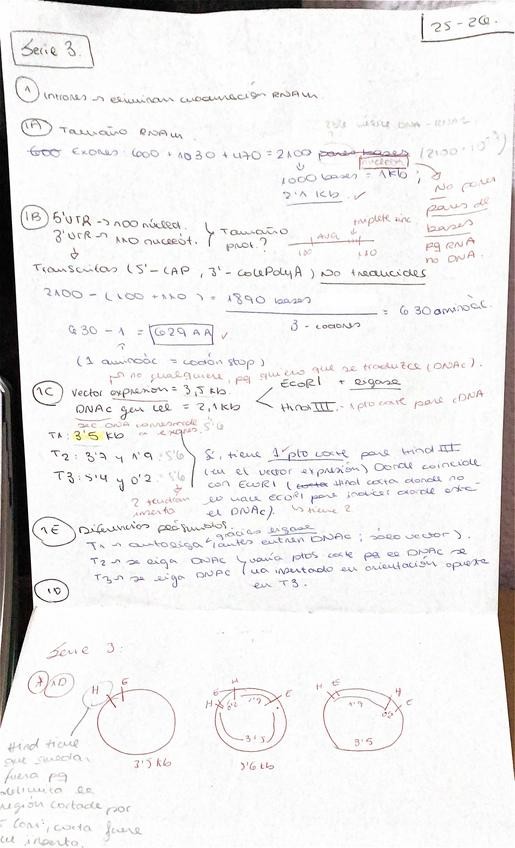 25-26.
Serie 3.
1 Intrones → eliminan maduración RNAm.
1A Tamaño RNAm.
600 Exones: 600 + 1030 + 470 = 2100 pares bases (2100·10⁻³)
1000 bases = 1Kb;
2'1 Kb. ✓
No pares
pares de
bases
pq RNA
no DNA.
1B 5'UTR → 100 núcleot.
3'UTR → 110 nucleót.
Tamaño
prot.?
AUG
100
110
Transcritas (5'-CAP, 3'-cola PolyA) No traducidas
2100 - (100 + 110) = 1890 bases
3 - codones
= 630 aminoác.
630 - 1 = 629 AA ✓
(1 aminoác = codón stop)
no cualquiera, pq quiero que se traduzca (DNAc).
1C vector expresión = 3,5 kb
DNAc gen cel = 2,1 kb
EcoRI + ligasa
Hind III - 1 pto corte para cDNA
T1: 3'5 kb
5'6
T2: 3'7 y 1'9 5'6
T3: 5'4 y 0'2 5'6
2 tendrían
inserto
Sí, tiene 1 pto corte para Hind III
(en el vector expresión) Donde coincide
con EcoRI (Hind corta donde no
lo hace EcoRI para indicar donde está
el DNAc). → tiene 2
1E Diferencias plásmidos.
gracias ligasa
T1 → autoliga (antes entren DNAc; sólo vector).
T2 → se liga DNAc
T3 → se liga DNAc
varía ptos corte pq el DNAc se
ha insertado en orientación opuesta
en T3.
1D
Serie 3:
A 1D
H E
E H E
H
0'2 1'9
3'5
H E H
E
1'9 0'2
3'5
3'5 kb
5'6 kb
Hind tiene
que quedar
fuera pq
delimita la
región cortada por
corta fuera